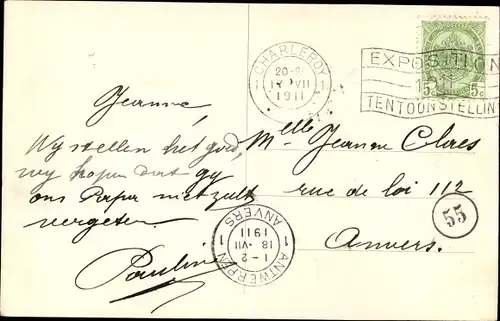 Jeanne,
Wij stellen het goed,
wy hopen dat gy
ons Papa niet zult
vergeten.
Pauline
CHARLEROY
20-21
VII
1911
EXPOSITION
TENTOONSTELLING
5c 5c
Melle Jeanne Claes
rue de loi 112
Anvers.
55
ANTWERPEN 1
1-2
18 · VII
1911
1 ANVERS